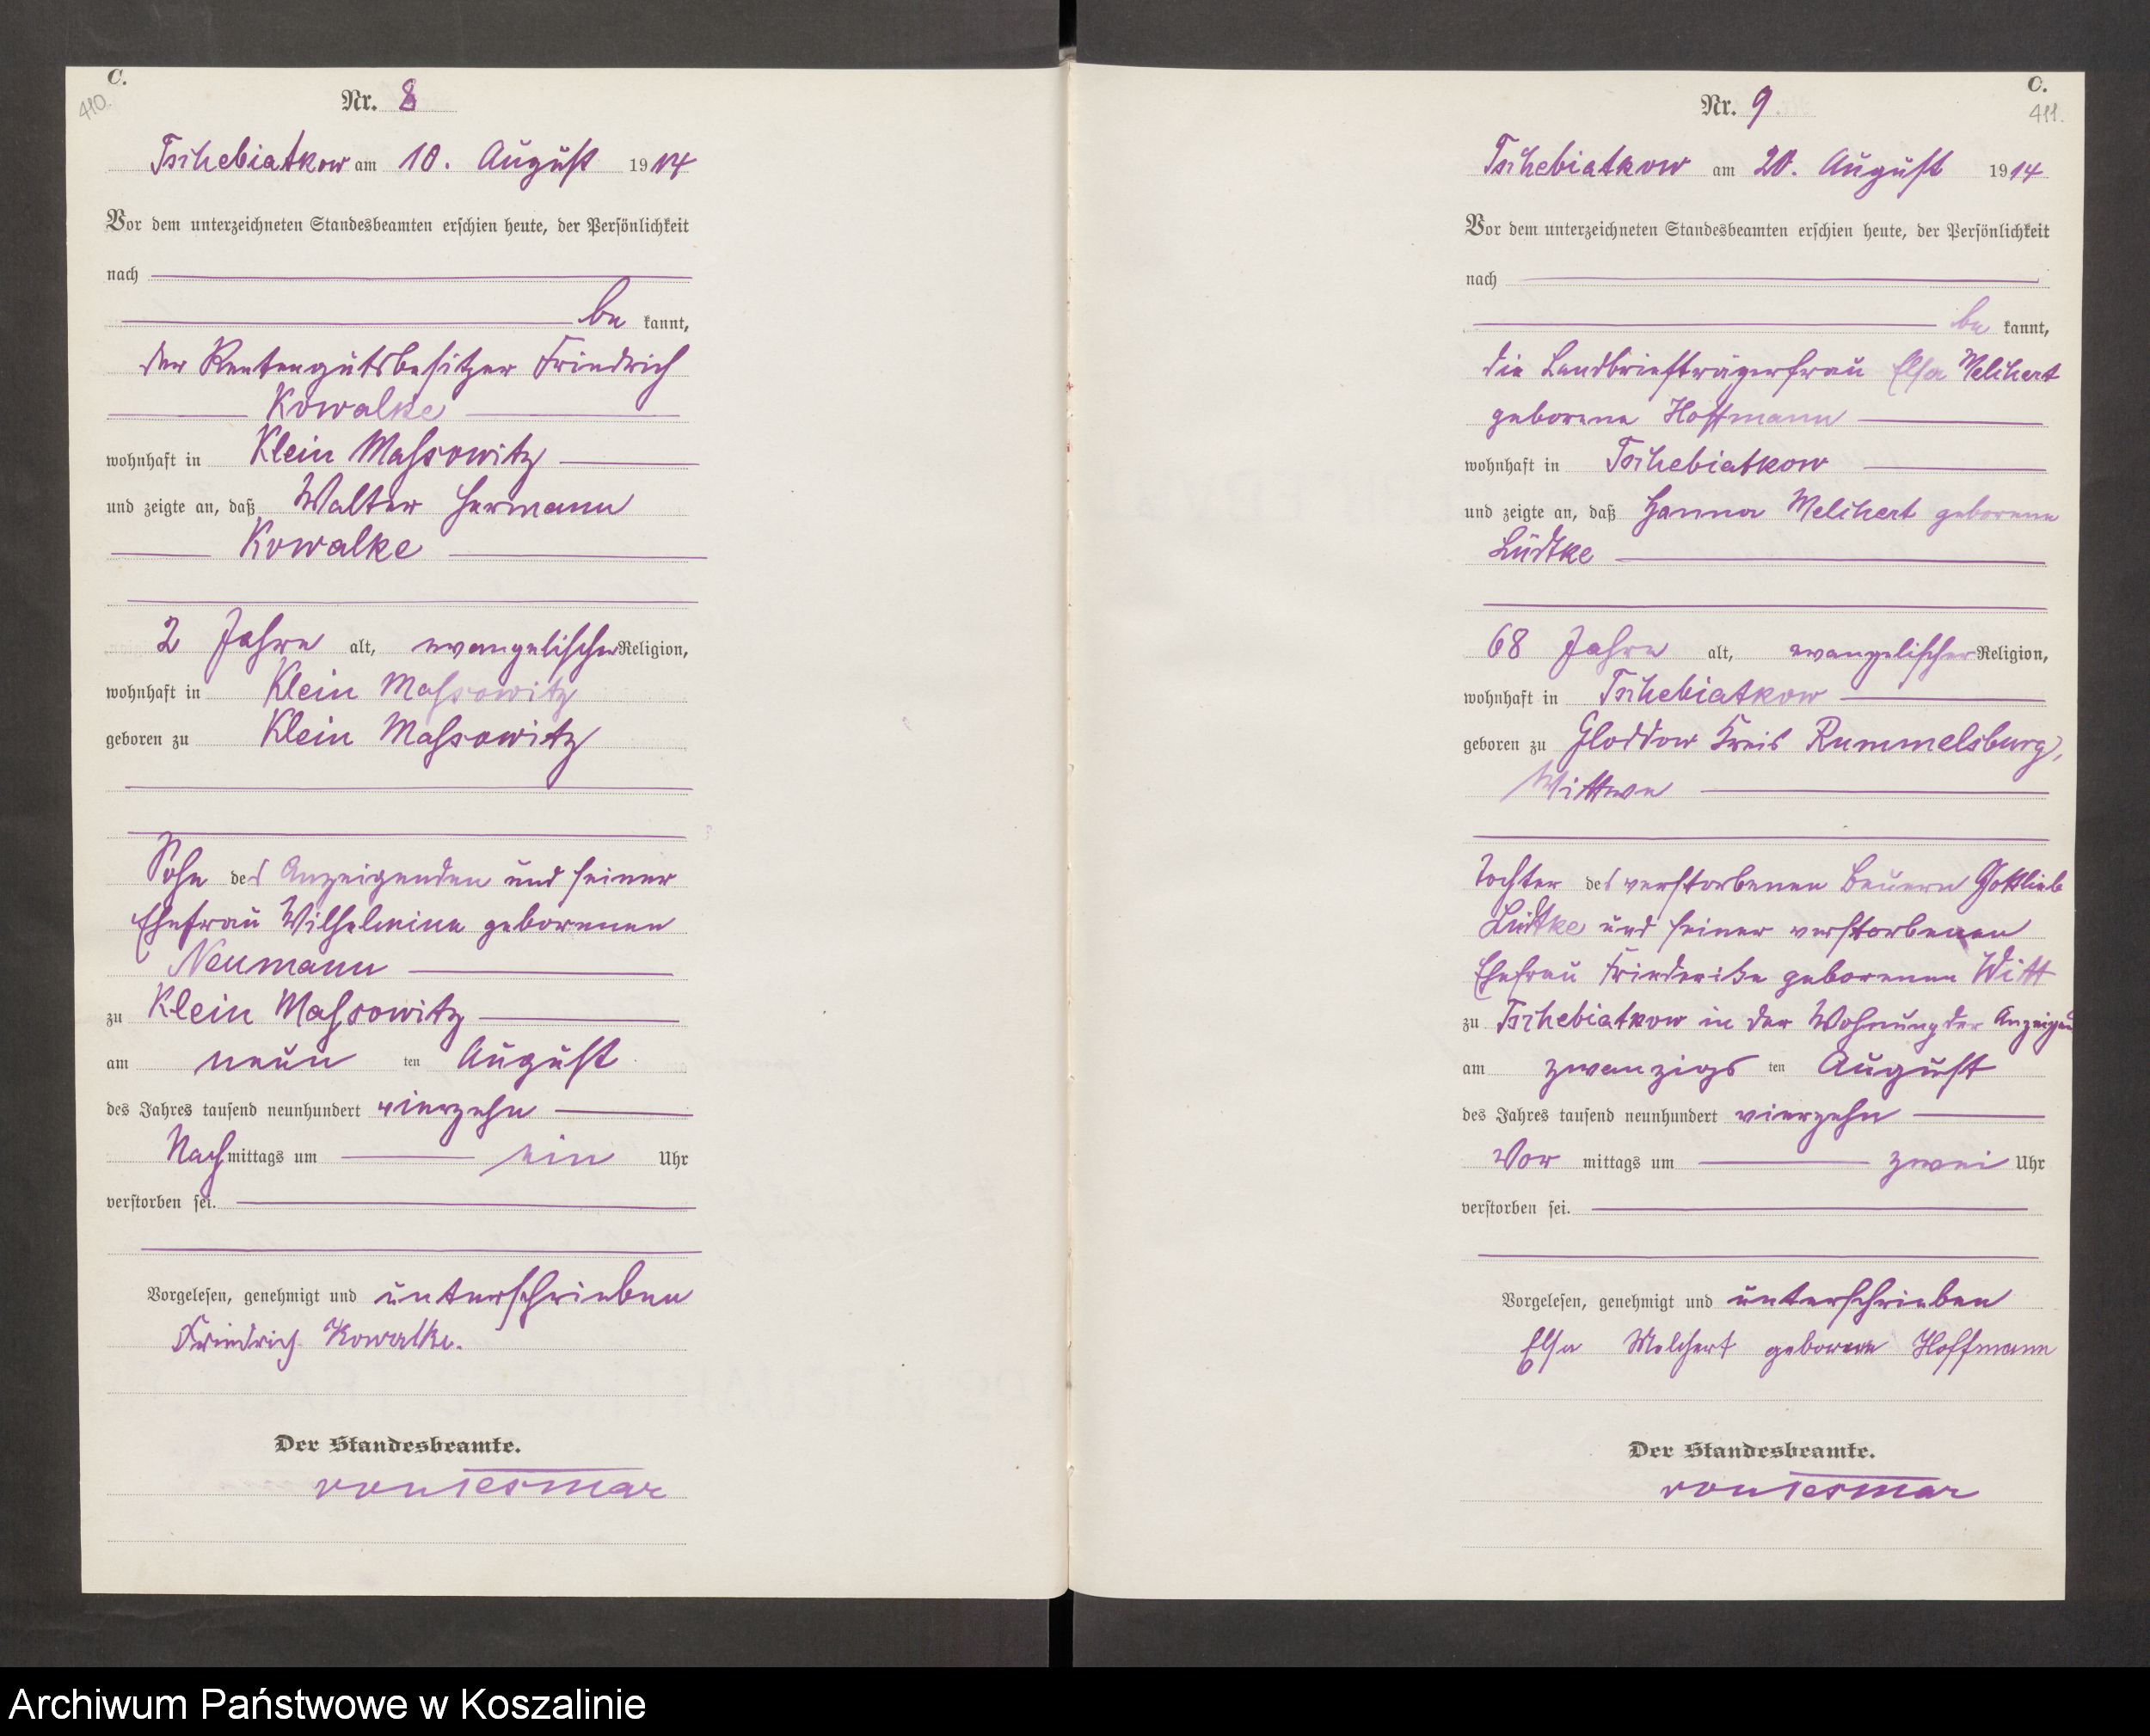 C.
410.
Nr. 8
Tschebiatkow am 10. August 1914
Vor dem unterzeichneten Standesbeamten erschien heute, der Persönlichkeit
nach
be kannt,
der Rentengutsbesitzer Friedrich
Kowalke
wohnhaft in Klein Massowitz
und zeigte an, daß Walter Hermann
Kowalke
2 Jahre alt, evangelischer Religion,
wohnhaft in Klein Massowitz
geboren zu Klein Massowitz
Sohn des Anzeigenden und seiner
Ehefrau Wilhelmine geborenen
Neumann
zu Klein Massowitz
am neun ten August
des Jahres tausend neunhundert vierzehn
Nachmittags um ein Uhr
verstorben sei.
Vorgelesen, genehmigt und unterschrieben
Friedrich Kowalke.
Der Standesbeamte.
von Tesmar
C.
411.
Nr. 9
Tschebiatkow am 20. August 1914
Vor dem unterzeichneten Standesbeamten erschien heute, der Persönlichkeit
nach
be kannt,
die Landbriefträgerfrau Elsa Melchert
geborene Hoffmann
wohnhaft in Tschebiatkow
und zeigte an, daß Hanna Melchert geborene
Lüdtke
68 Jahre alt, evangelischer Religion,
wohnhaft in Tschebiatkow
geboren zu Gloddow Kreis Rummelsburg,
Wittwe
Tochter des verstorbenen Bauern Gottlieb
Lüdtke und seiner verstorbenen
Ehefrau Friederike geborenen Witt
zu Tschebiatkow in der Wohnung der Anzeigen
am zwanzigs ten August
des Jahres tausend neunhundert vierzehn
Vor mittags um zwei Uhr
verstorben sei.
Vorgelesen, genehmigt und unterschrieben
Elsa Melchert geborene Hoffmann
Der Standesbeamte.
von Tesmar
Archiwum Państwowe w Koszalinie